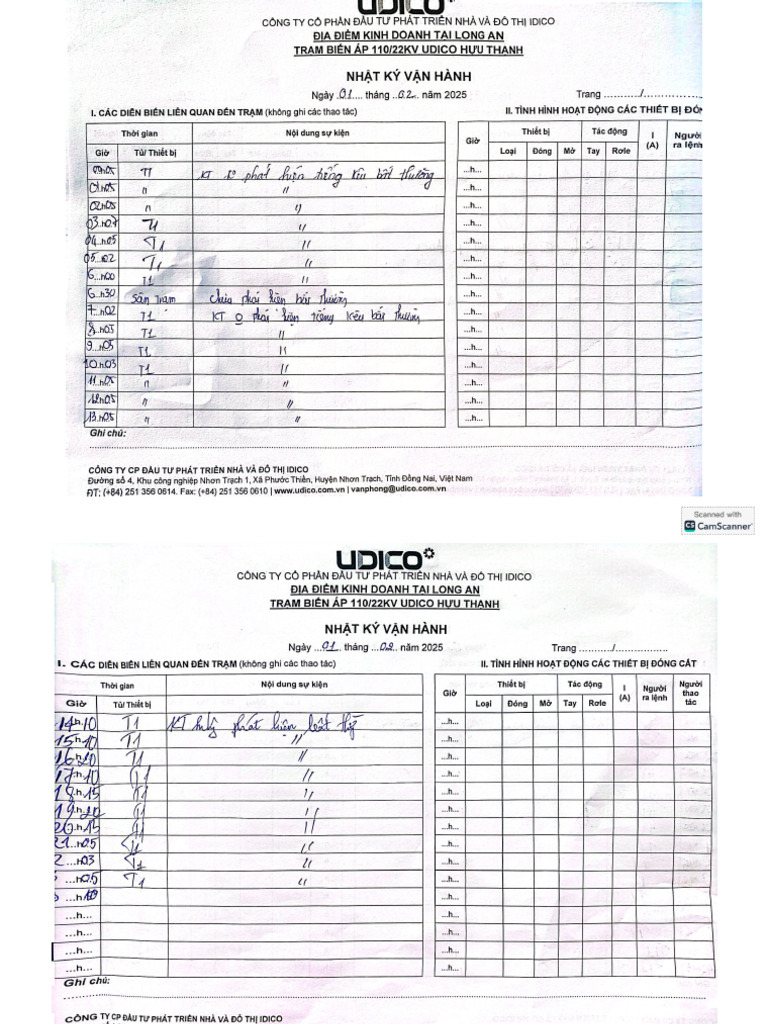 UDICO
CÔNG TY CỔ PHẦN ĐẦU TƯ PHÁT TRIỂN NHÀ VÀ ĐÔ THỊ IDICO
ĐỊA ĐIỂM KINH DOANH TẠI LONG AN
TRẠM BIẾN ÁP 110/22KV UDICO HỰU THẠNH
NHẬT KÝ VẬN HÀNH
Ngày 01 tháng 02 năm 2025 Trang ........../...............
I. CÁC DIỄN BIẾN LIÊN QUAN ĐẾN TRẠM (không ghi các thao tác) II. TÌNH HÌNH HOẠT ĐỘNG CÁC THIẾT BỊ ĐÓN
Thời gian Nội dung sự kiện Giờ Thiết bị Tác động I (A) Người ra lệnh
Giờ Từ/ Thiết bị Loại Đóng Mở Tay Rơle
T1 KT phát hiện tiếng kêu bất thường ...h...
01h05 " " ...h...
02h05 " " ...h...
03h07 T1 " ...h...
04h05 T1 " ...h...
05h02 T1 " ...h...
6h00 T1 " ...h...
6h30 Sân trạm Chưa phát hiện bất thường ...h...
7h02 T1 KT 0 phát hiện tiếng kêu bất thường ...h...
8h03 T1 " ...h...
9h05 T1 " ...h...
10h03 T1 " ...h...
11h05 " " ...h...
12h05 " " ...h...
13h05 " " ...h...
Ghi chú:
CÔNG TY CP ĐẦU TƯ PHÁT TRIỂN NHÀ VÀ ĐÔ THỊ IDICO
Đường số 4, Khu công nghiệp Nhơn Trạch 1, Xã Phước Thiền, Huyện Nhơn Trạch, Tỉnh Đồng Nai, Việt Nam
ĐT: (+84) 251 356 0614. Fax: (+84) 251 356 0610 | www.udico.com.vn | vanphong@udico.com.vn
Scanned with
CS CamScanner
UDICO
CÔNG TY CỔ PHẦN ĐẦU TƯ PHÁT TRIỂN NHÀ VÀ ĐÔ THỊ IDICO
ĐỊA ĐIỂM KINH DOANH TẠI LONG AN
TRẠM BIẾN ÁP 110/22KV UDICO HỰU THẠNH
NHẬT KÝ VẬN HÀNH
Ngày 01 tháng 02 năm 2025 Trang ........../...............
I. CÁC DIỄN BIẾN LIÊN QUAN ĐẾN TRẠM (không ghi các thao tác) II. TÌNH HÌNH HOẠT ĐỘNG CÁC THIẾT BỊ ĐÓNG CẮT
Thời gian Nội dung sự kiện Giờ Thiết bị Tác động I (A) Người ra lệnh Người thao tác
Giờ Từ/ Thiết bị Loại Đóng Mở Tay Rơle
14h10 T1 KT phát hiện bất ...h...
15h10 T1 " ...h...
16h20 T1 " ...h...
17h10 T1 " ...h...
18h15 T1 " ...h...
19h20 T1 " ...h...
20h15 T1 " ...h...
21h05 T1 " ...h...
2...h03 T1 " ...h...
...h05 T1 " ...h...
...h ...h...
...h... ...h...
...h... ...h...
...h... ...h...
...h... ...h...
Ghi chú:
CÔNG TY CP ĐẦU TƯ PHÁT TRIỂN NHÀ VÀ ĐÔ THỊ IDICO